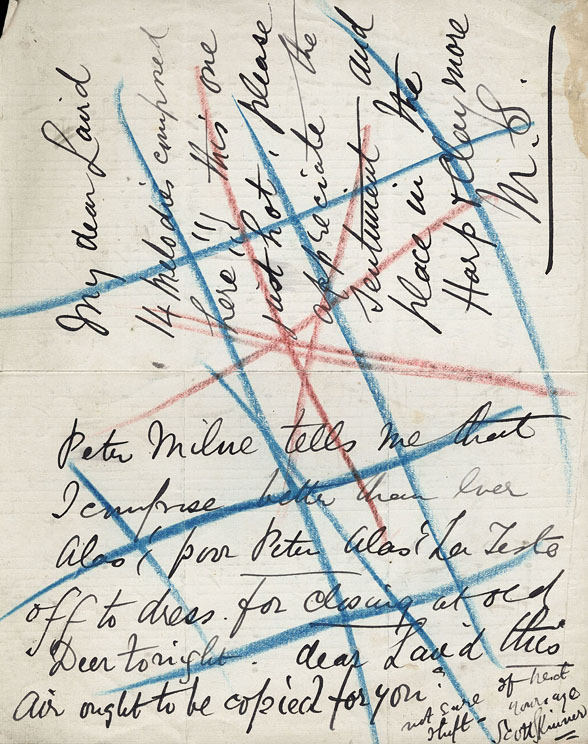 My dear Laird
14 melodies composed
here!!! this one
just hot! please
appreciate the
sentiment and
place in the
Harp & Claymore
M. S.
Peter Milne tells me that
I compose better than ever
Alas! poor Peter Alas!
off to dress. for closing at old
Deer tonight. dear Laird this
air ought to be copied for you
not sure
of next
Scott Skinner